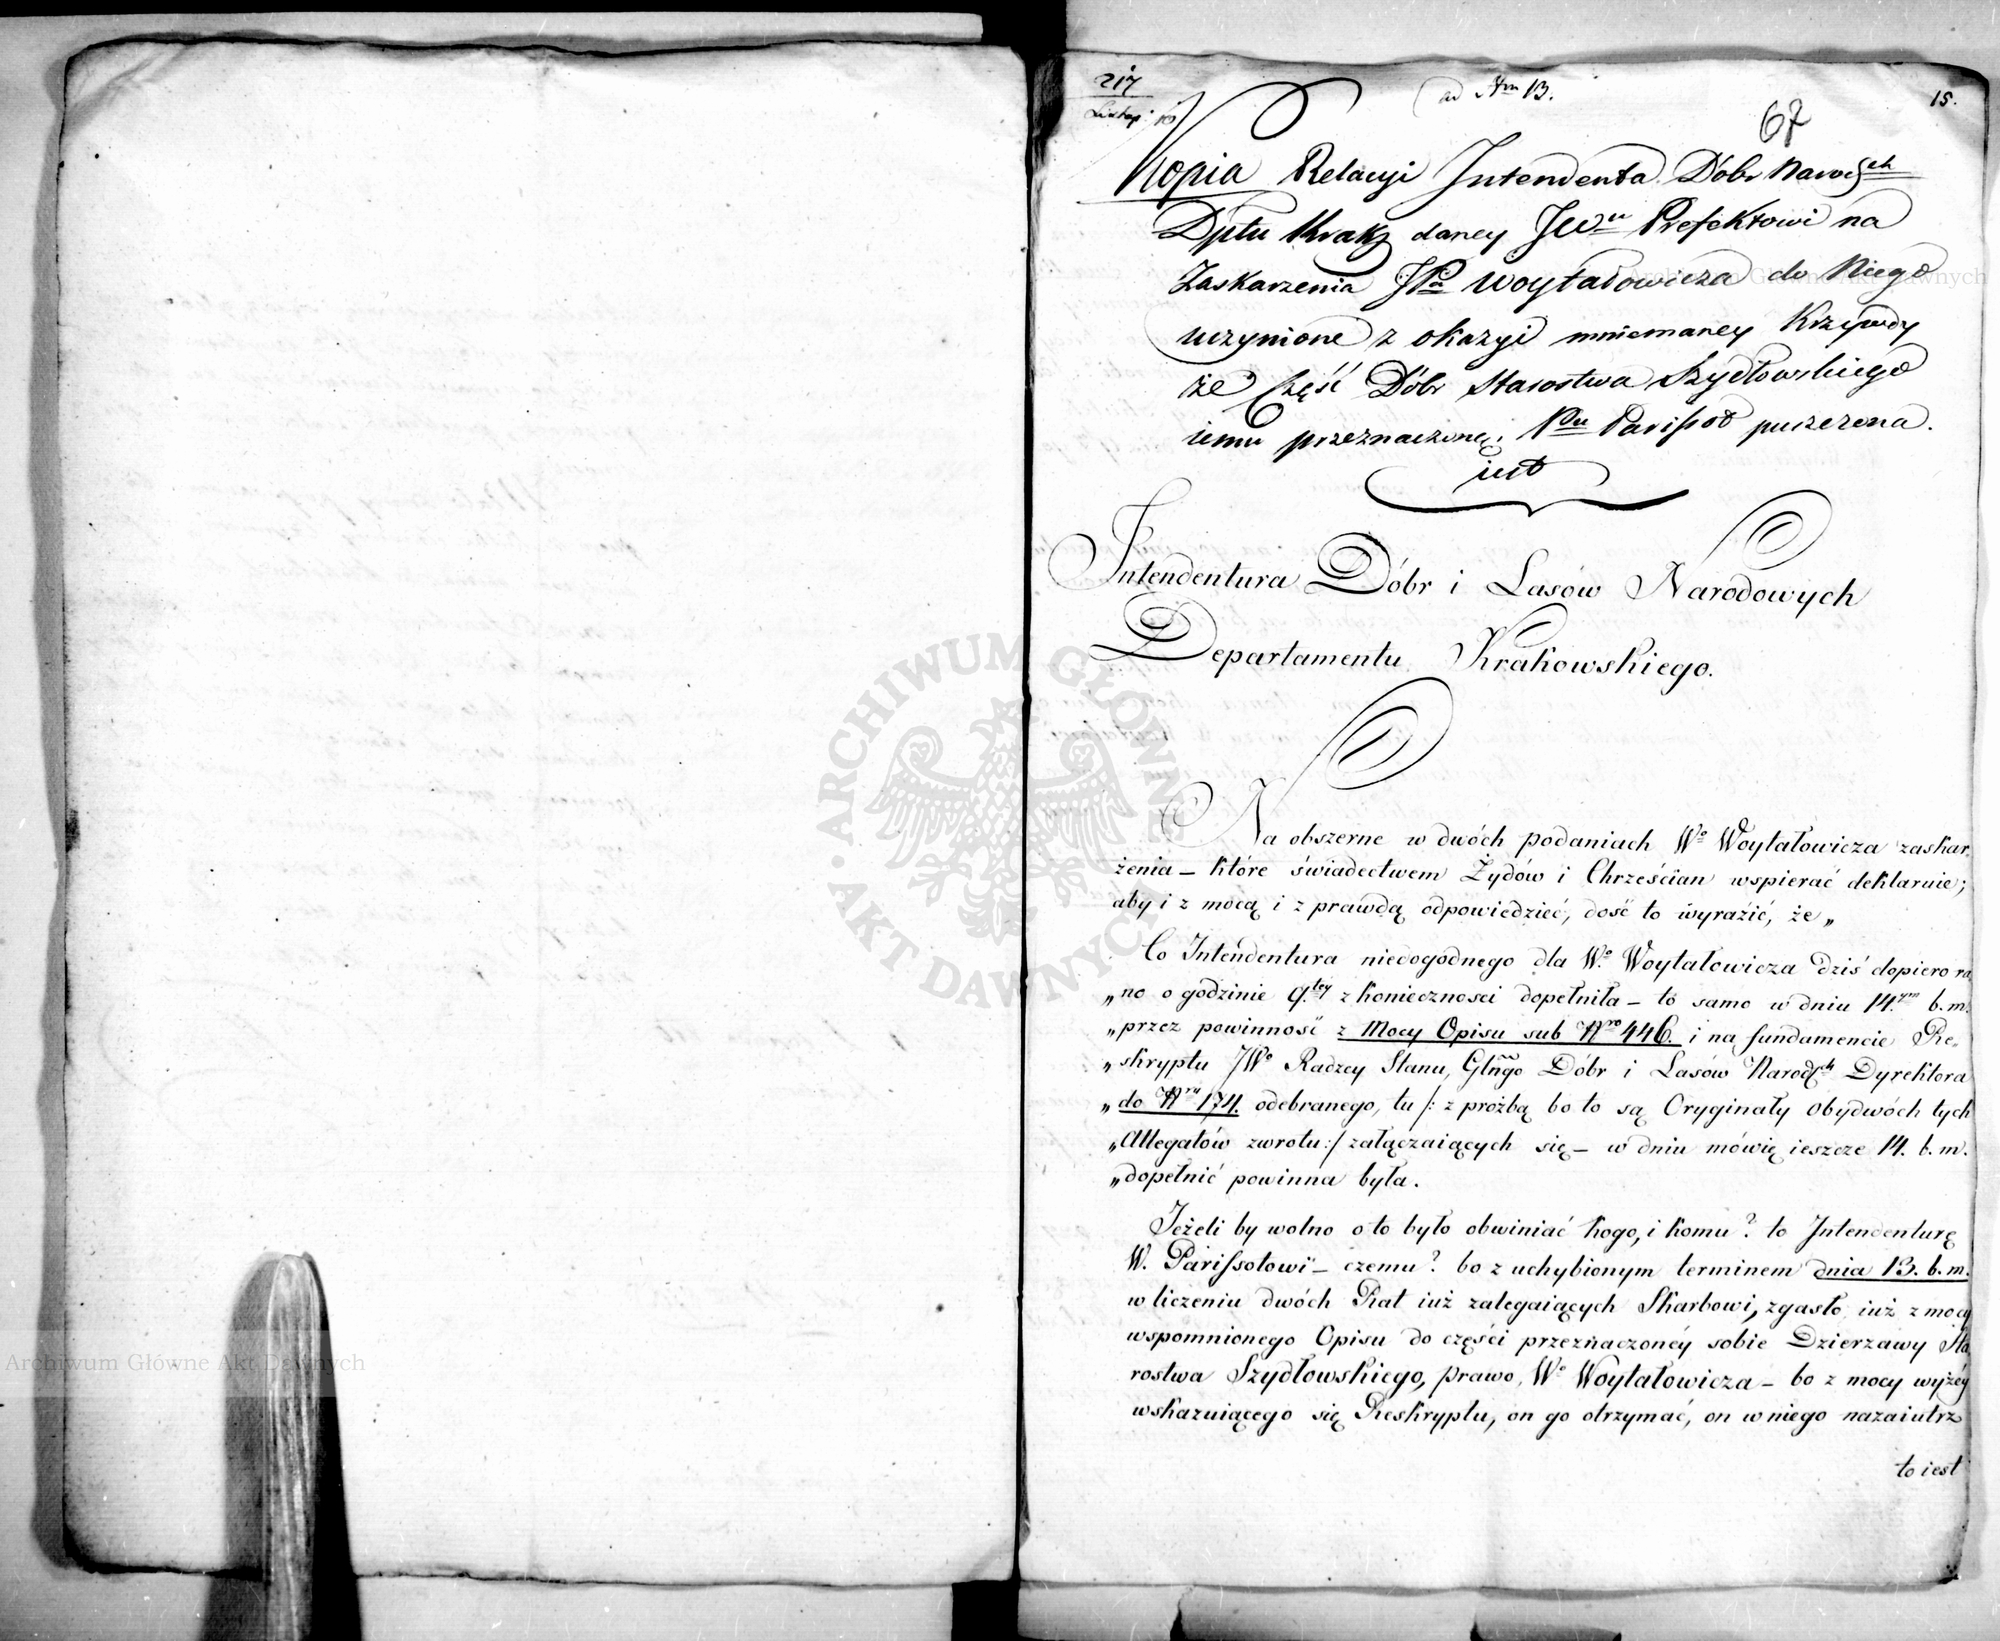 217
Listop: 10
ad Nrm 13.
15.
67
Kopia Relacyi Intendenta Dóbr Narodch
Dptu Krak daney JWu Prefektowi na
Zaskarzenia JPa Woytałowicza do Niego
uczynione z okazyi mniemaney Krzywdy
że Część Dóbr Starostwa Szydłowskiego
iemu przeznaczoney, Pu Parissot puszczona.
iest
Intendentura Dóbr i Lasów Narodowych
Departamentu Krakowskiego.
Na obszerne w dwóch podaniach Wo Woytałowicza zaskar=
żenia – które świadectwem Żydów i Chrześcian wspierać deklaruie;
aby i z mocą i z prawdą odpowiedzieć, dość to wyrazić, że „
Co Intendentura niedogodnego dla Wo Woytałowicza dziś dopiero ra
„no o godzinie 9tey z konieczności dopełniła – to samo w dniu 14ym b. m.
„przez powinność z Mocy Opisu sub Nro 446. i na fundamencie Re=
„skryptu JWo Radzcy Stanu, Głngo Dóbr i Lasów Narodch Dyrektora
„do Nru 174. odebranego, tu /: z prozbą bo to są Oryginały obydwóch tych
„Allegatów zwrotu :/ załączaiących się – w dniu mówię ieszcze 14. b. m.
„dopełnić powinna była.
Jeżeli by wolno o to było obwiniać kogo, i komu? to Intendenturę
W. Parissotowi – czemu? bo z uchybionym terminem dnia 13. b. m.
w liczeniu dwóch Rat iuż zalegaiących Skarbowi, zgasło iuż z mocy
wspomnionego Opisu do części przeznaczoney sobie Dzierzawy Sta
rostwa Szydłowskiego, prawo, Wo Woytałowicza – bo z mocy wyżéy
wskazuiącego się Reskryptu, on go otrzymać, on w niego nazaiutrz
to iest
ARCHIWUM GŁÓWNE AKT DAWNYCH
Archiwum Główne Akt Dawnych
Archiwum Główne Akt Dawnych